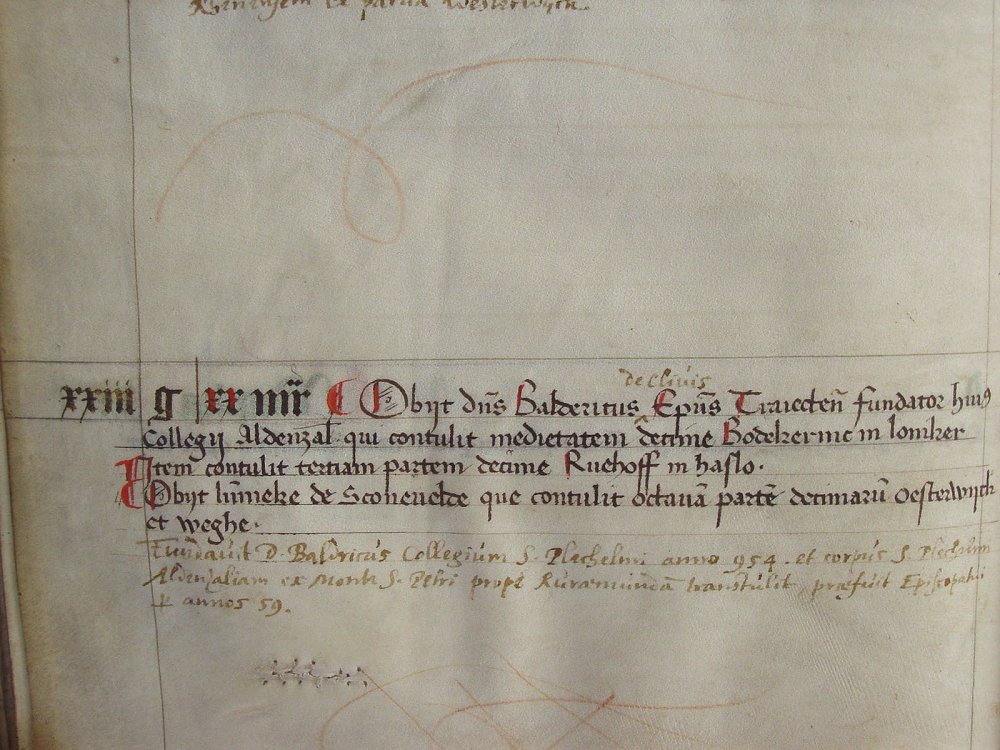 ex parva Westerwijck.
de Clivis
xxiii g xx iiii Obijt dns Baldericus Epus Traiecten fundator huius
Collegij Aldenzal qui contulit medietatem decime Bodekerinc in lonker
Item contulit tertiam partem decime Ruehoff in haslo.
Obijt lumeke de Sconevelde que contulit octavā partē decimarū Oesterwijck
et weghe.
Fundavit D. Baldricus Collegium S. Plechelmi anno 954. et corpus S. Plechelmi
Aldenzaliam ex Monte S. Petri prope Ruraemundā transtulit, praefuit Episcopatui
annos 59.